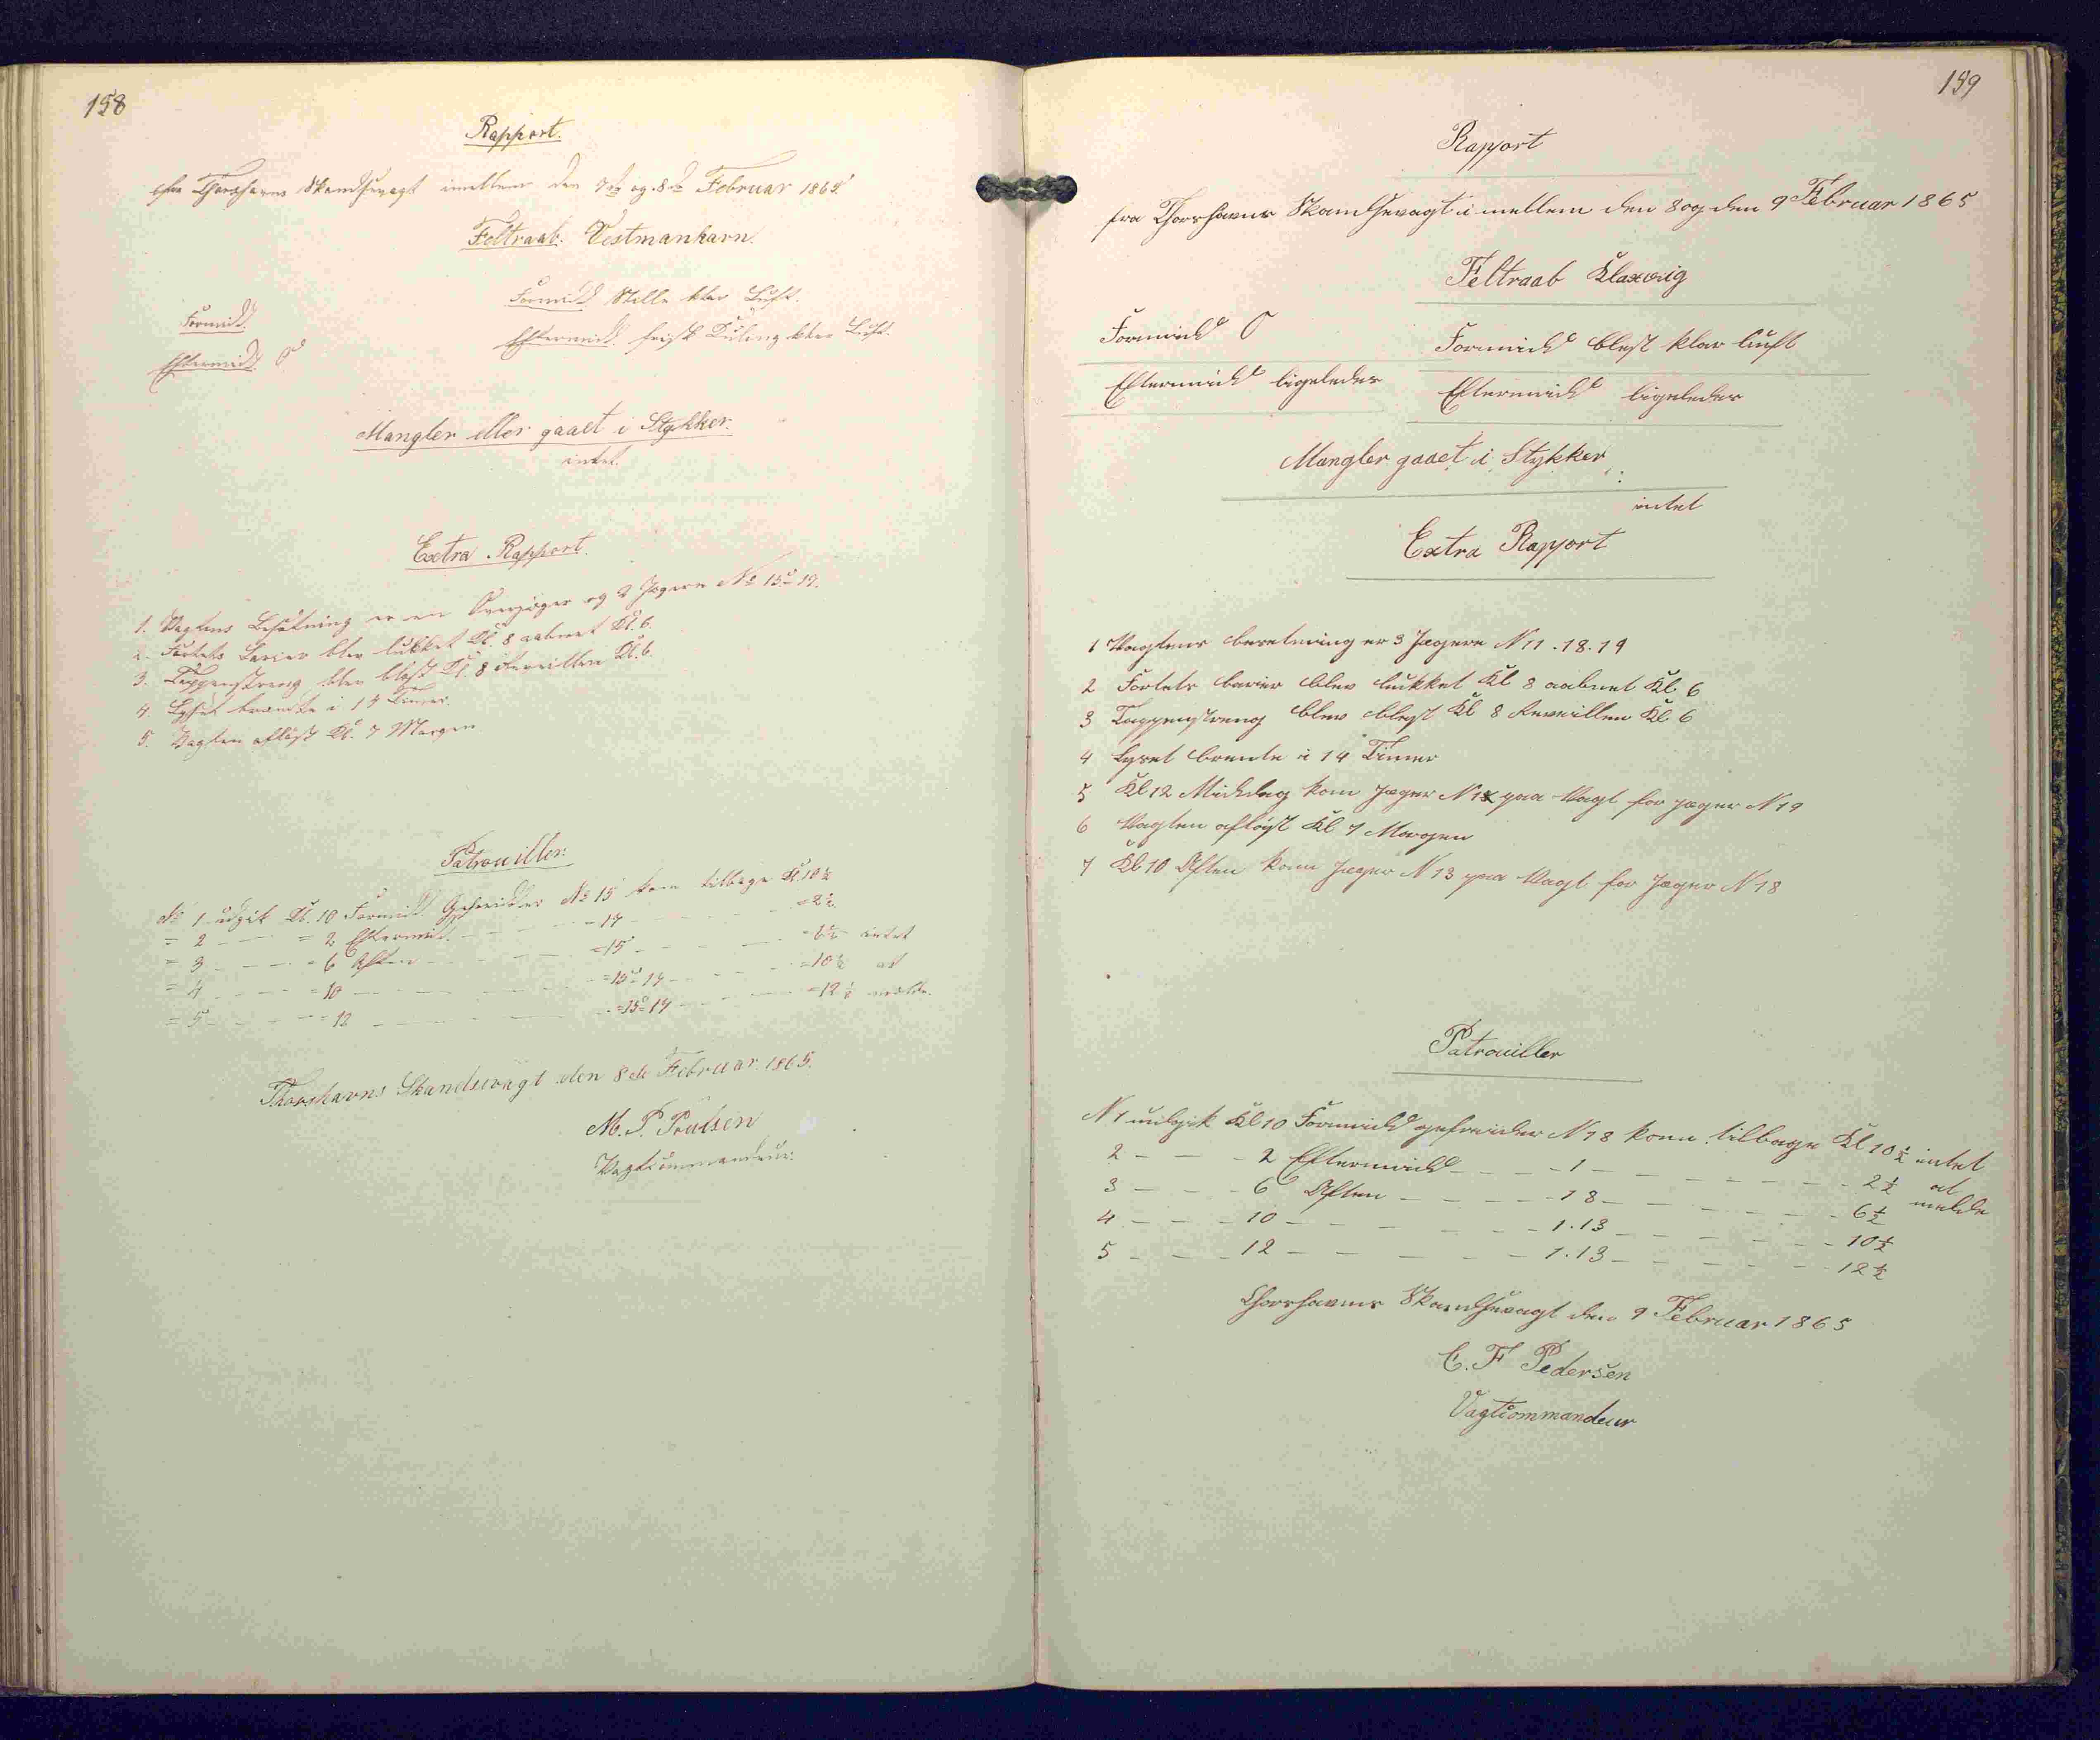 158
Rapport.
fra Thorshavns Skandsevagt imellem den 7de og 8de Februar 1865.
Feltraab: Vestmanhavn.
Formid. Stille klar Luft.
Formid.
Eftermid. frisk Kuling klar Luft.
Eftermid. O
Mangler eller gaaet i Stykker.
intet.
Extra Rapport.
1. Vagtens Besætning er en Overjæger og 2 Jægere No 15 - 19.
2. Fortets Barier blev lukket Kl. 8 aabnet Kl. 6.
3. Tappenstreng blev blæst Kl. 8 Reveillen Kl. 6.
4. Lyset brændte i 14 Timer.
5. Vagten afløst Kl. 7 Morgen
Patrouiller:
No 1 udgik Kl. 10 Formid. Gefreider No 15 kom tilbage Kl. 10½
= 2 - - = 2 Eftermid. - - = 19 - - = 2½
= 3 - - = 6 Aften - - = 15 - - = 6½ intet
= 4 - - = 10 - - = 15 - 19 - - = 10½ at
= 5 - - = 12 - - = 15 - 19 - - = 12½ melde.
Thorshavns Skandsevagt den 8de Februar 1865.
M. P. Poulsen
Vagtcommandeur.
159
Rapport
fra Thorshavns Skandsevagt i mellem den 8 og den 9 Februar 1865
Feltraab Klaxvig
Formidd O Formidd blest klar luft
Eftermidd ligeledes Eftermidd ligeledes
Mangler gaaet i Stykker
intet
Extra Rapport
1 Vagtens beretning er 3 Jægere N 11 . 18 . 19
2 Fortets barier blev lukket Kl 8 aabnet Kl 6
3 Tappenstreng blev blæst Kl 8 Reveillen Kl 6
4 Lyset brente i 14 Timer
5 Kl 12 Middag kom Jæger N 1 paa Vagt for Jæger N 19
6 Vagten afløst Kl 7 Morgen
7 Kl 10 Aften kom Jæger N 13 paa Vagt for Jæger N 18
Patrouiller
N 1 udgik Kl 10 Formidd gefreider N 18 kom tilbage Kl 10½ intet
2 - - - 2 Eftermidd - - - 1 - - - 2½ at
3 - - - 6 Aften - - - 18 - - - 6½ melde
4 - - - 10 - - - 1 . 13 - - - 10½
5 - - - 12 - - - 1 . 13 - - - 12½
Thorshavns Skandsevagt den 9 Februar 1865
C. F Pedersen
Vagtcommandeur